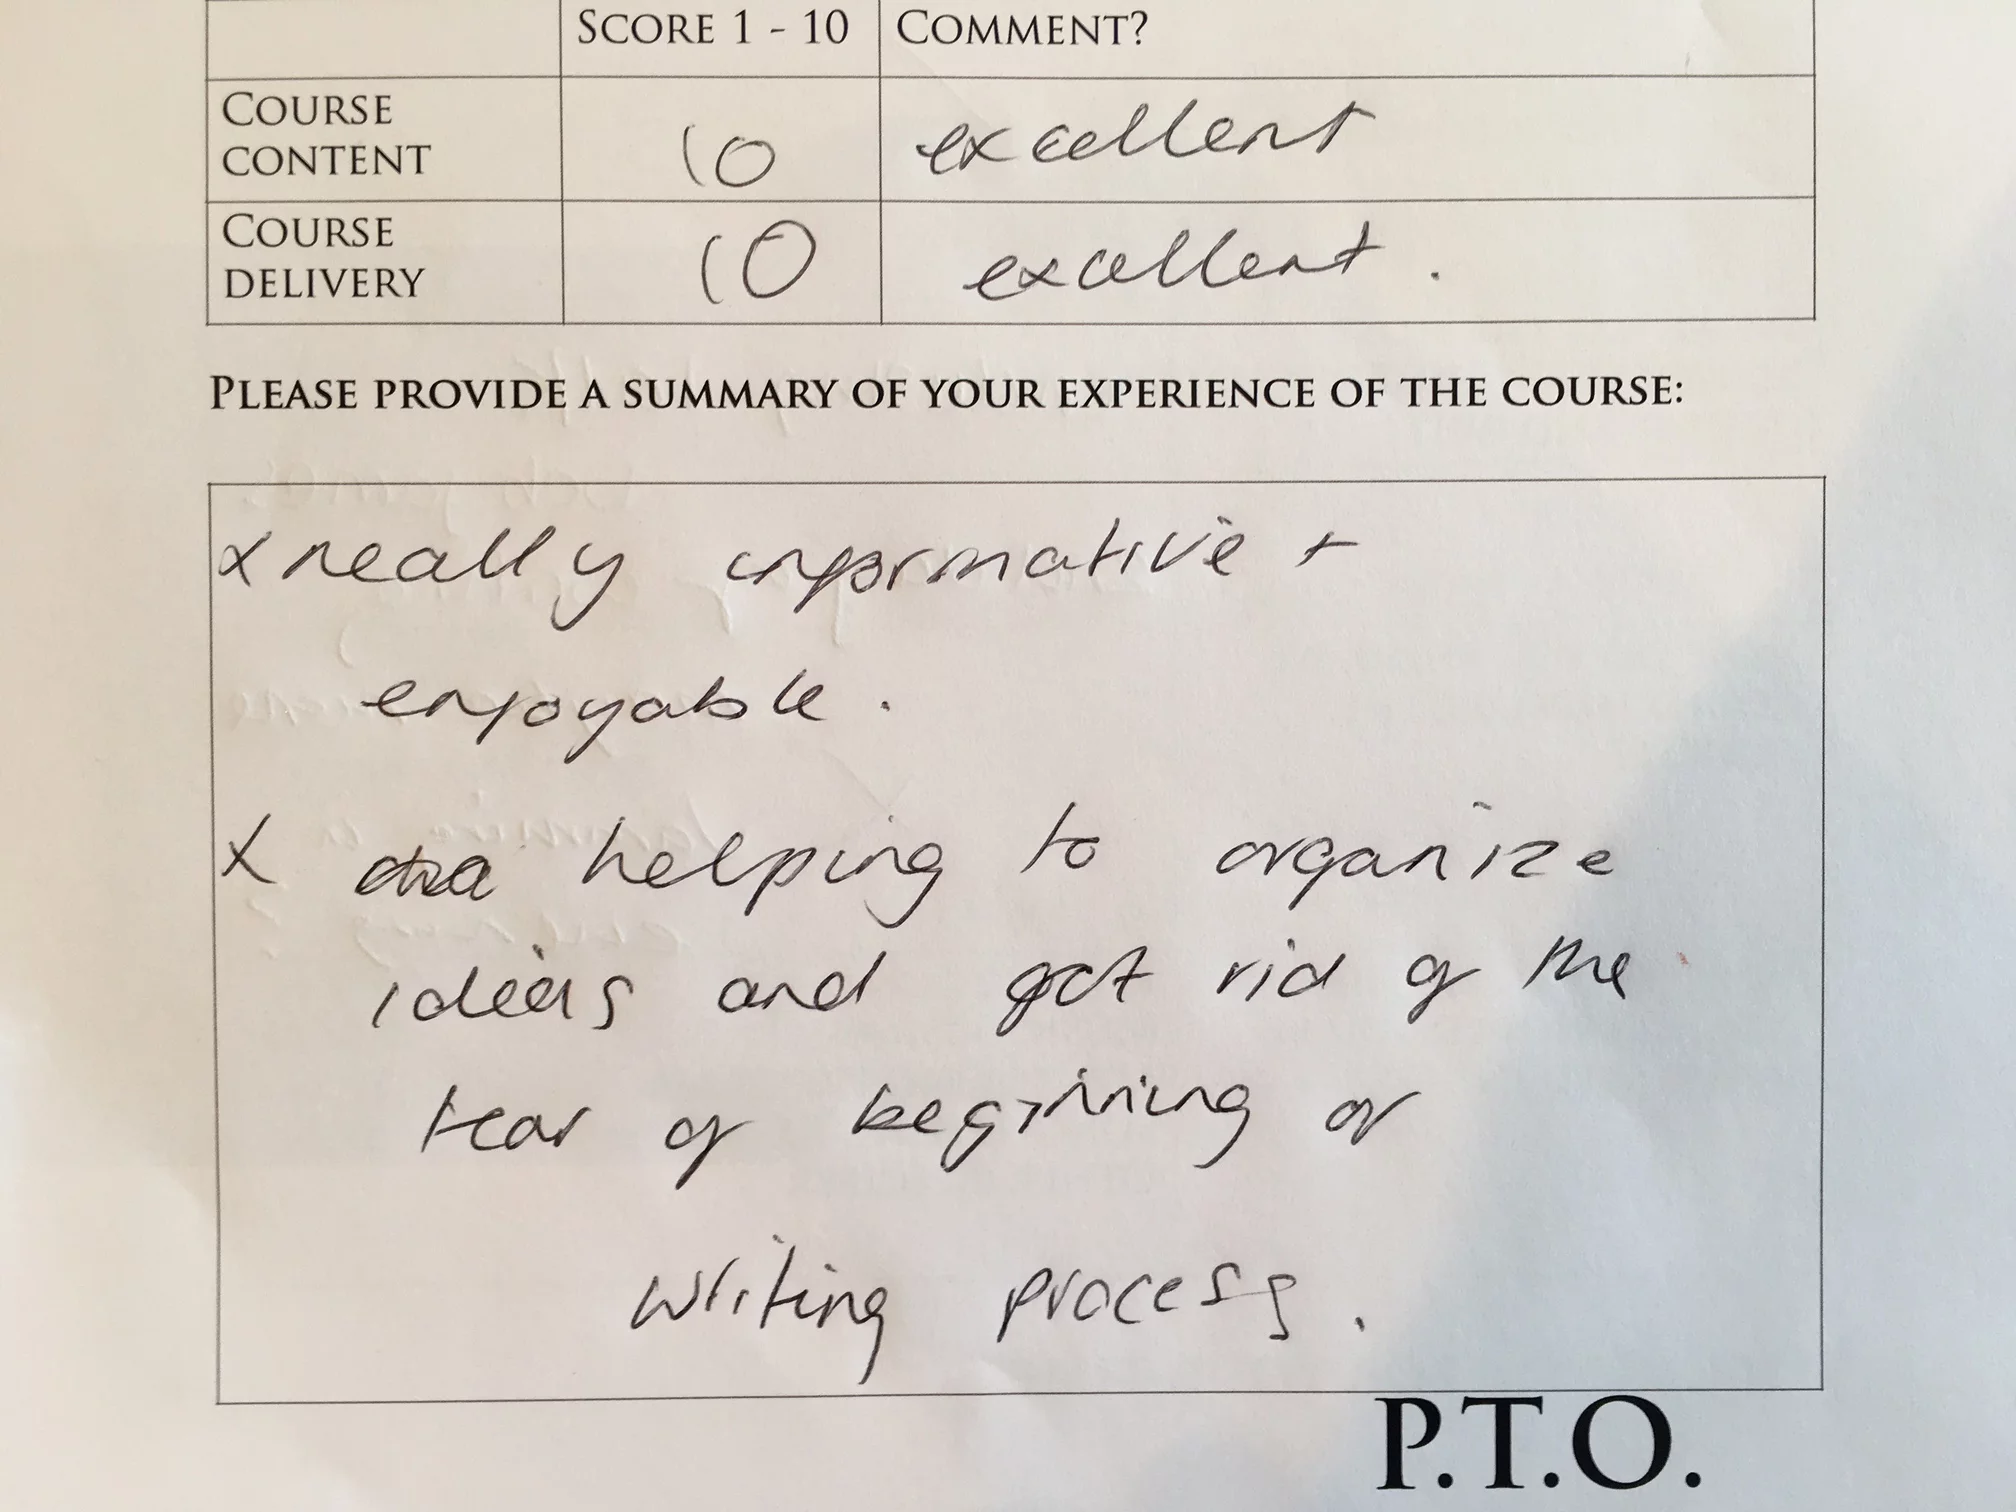 SCORE 1 - 10 COMMENT?
COURSE
CONTENT
10 excellent
COURSE
DELIVERY
10 excellent.
PLEASE PROVIDE A SUMMARY OF YOUR EXPERIENCE OF THE COURSE:
x really informative +
enjoyable.
x helping to organize
ideas and got rid of the
fear of beginning or
writing process.
P.T.O.